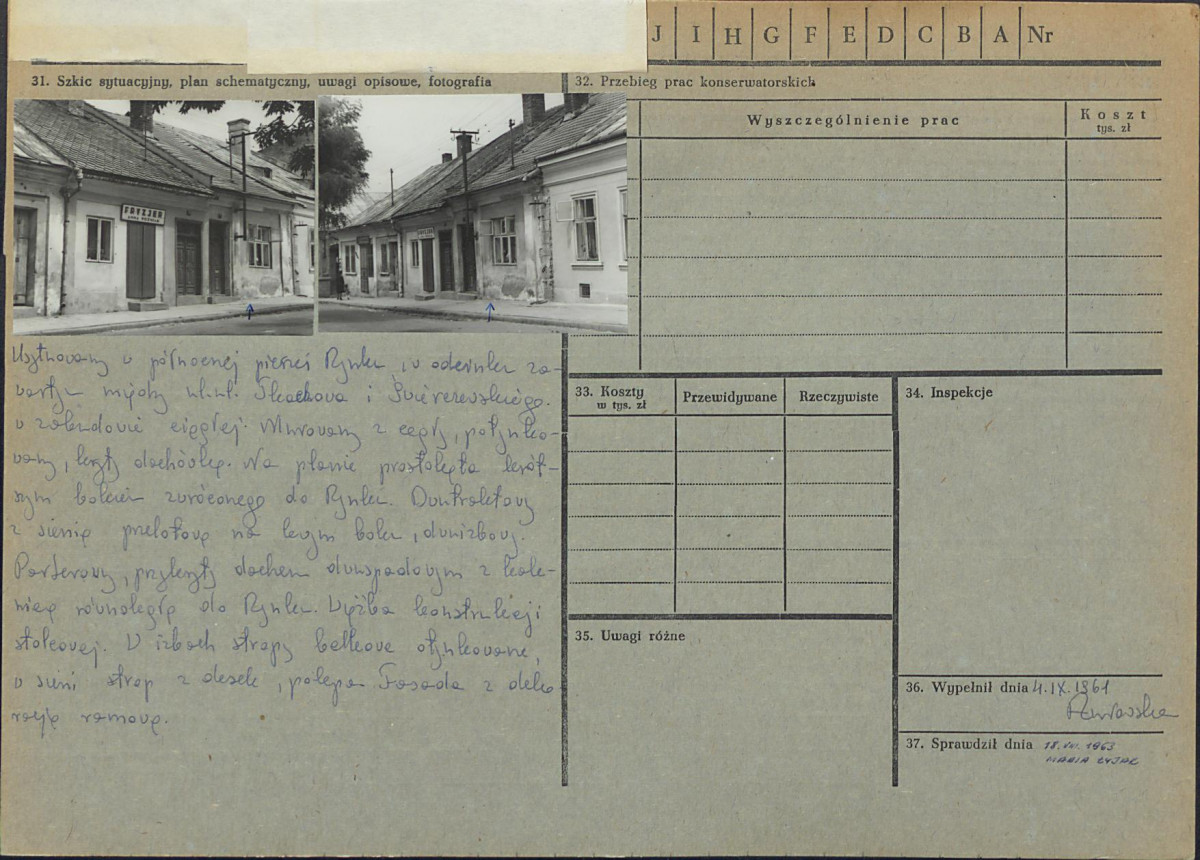 J I H G F E D C B A Nr
31. Szkic sytuacyjny, plan schematyczny, uwagi opisowe, fotografia
32. Przebieg prac konserwatorskich
Wyszczególnienie prac
Koszt
tys. zł
FRYZJER
FRYZJER
Usytuowany w północnej pierzei Rynku, w odcinku za-
wartym między ul.ul. Tkacka i Świerczewskiego.
w zabudowie ciągłej. Murowany z cegły, potynko-
wany, kryty dachówką. Na planie prostokąta krót-
szym bokiem zwróconego do Rynku. Dwutraktowy
z sienią przelotową na lewym boku, dwuizbowy.
Parterowy, przykryty dachem dwuspadowym z kale-
nicą równoległą do Rynku. Więźba konstrukcji
stolcowej. W izbach stropy belkowe otynkowane,
w sieni strop z desek, polepa. Fasada z deko-
racją ramową.
33. Koszty
w tys. zł
Przewidywane
Rzeczywiste
34. Inspekcje
35. Uwagi różne
36. Wypełnił dnia 4.IX.1961
37. Sprawdził dnia 18.VII.1963